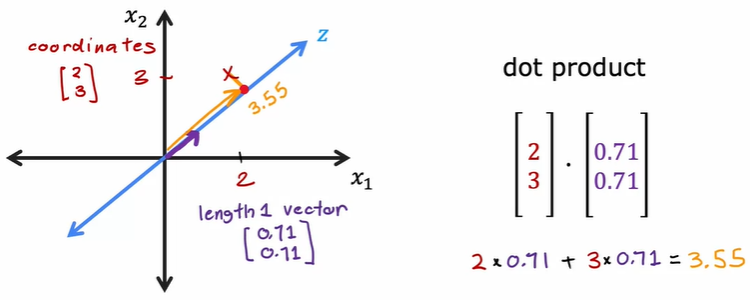 x₂
coordinates
[2
3]
3
x
z
3.55
2
x₁
length 1 vector
[0.71
0.71]
dot product
[2
3] · [0.71
0.71]
2 × 0.71 + 3 × 0.71 = 3.55